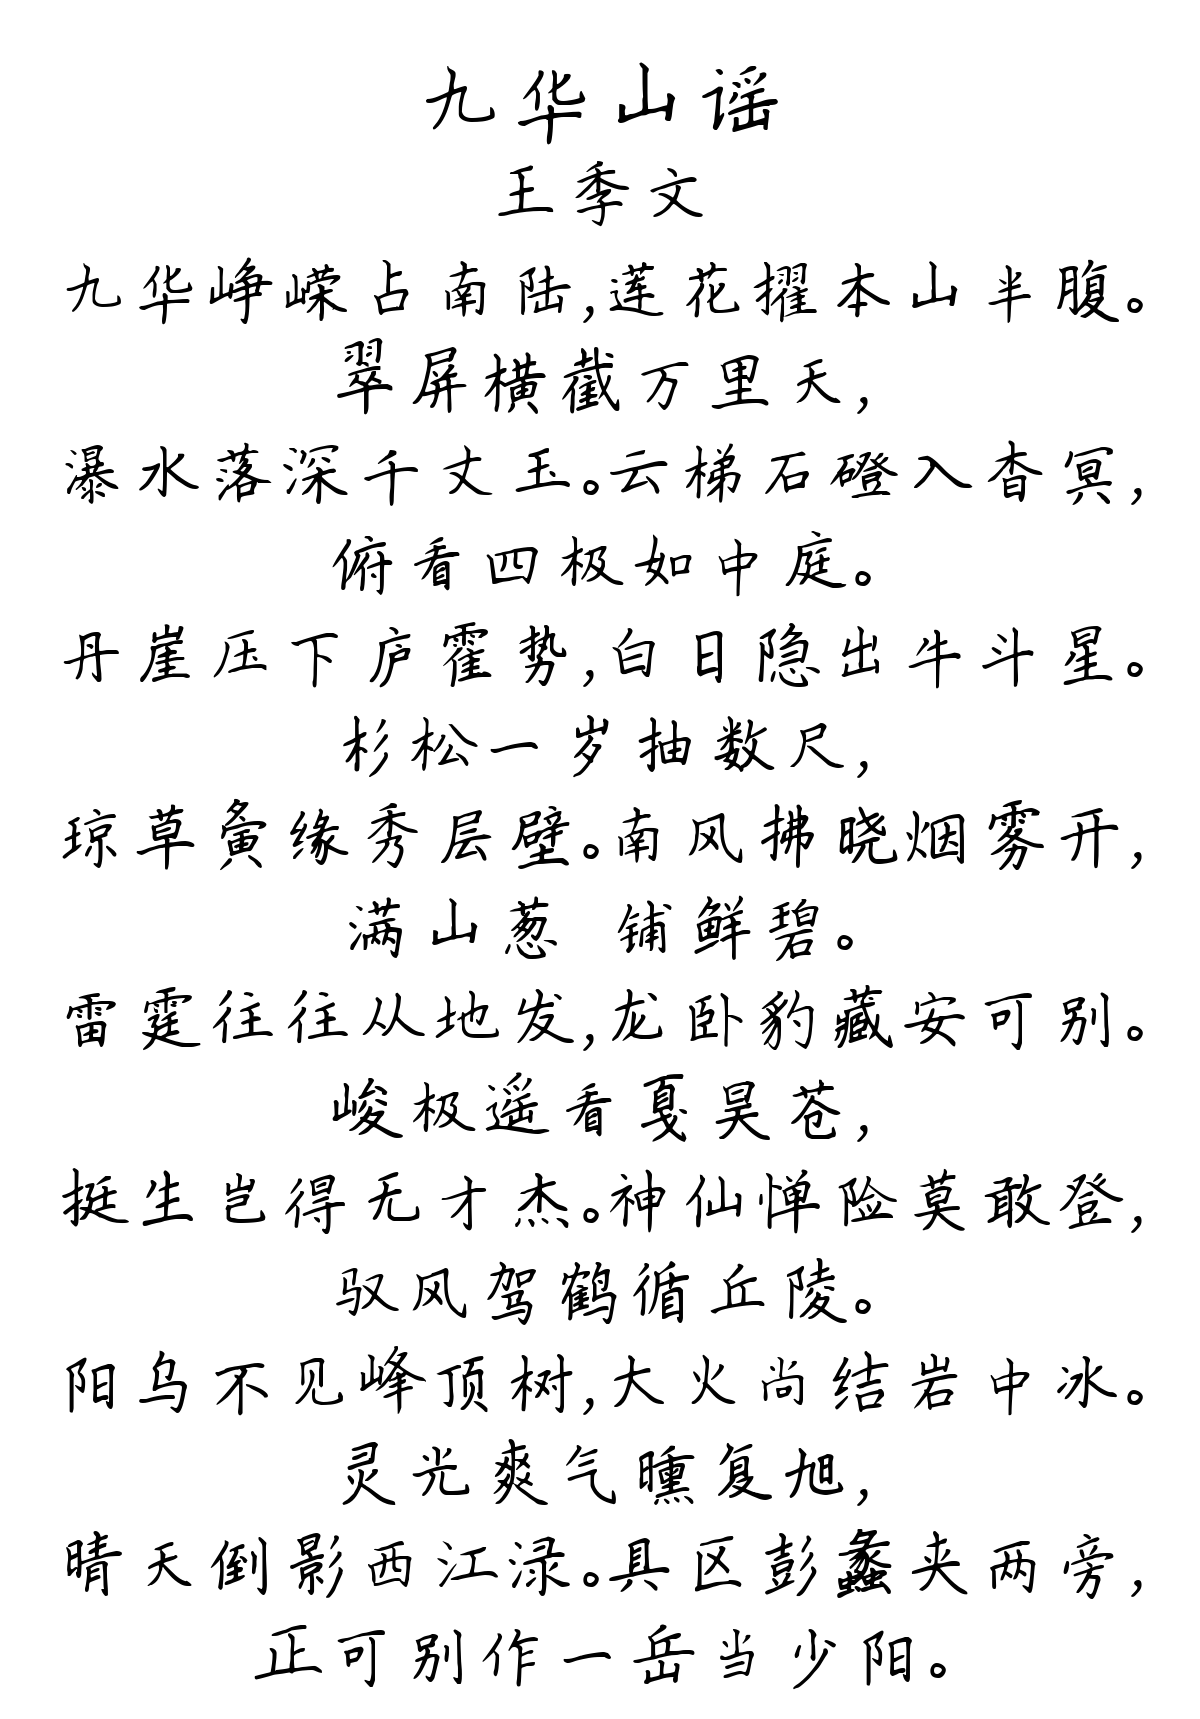 九华山谣
王季文
九华峥嵘占南陆,莲花擢本山半腹。
翠屏横截万里天,
瀑水落深千丈玉。云梯石磴入杳冥,
俯看四极如中庭。
丹崖压下庐霍势,白日隐出牛斗星。
杉松一岁抽数尺,
琼草夤缘秀层壁。南风拂晓烟雾开,
满山葱 铺鲜碧。
雷霆往往从地发,龙卧豹藏安可别。
峻极遥看戛昊苍,
挺生岂得无才杰。神仙惮险莫敢登,
驭风驾鹤循丘陵。
阳乌不见峰顶树,大火尚结岩中冰。
灵光爽气曛复旭,
晴天倒影西江渌。具区彭蠡夹两旁,
正可别作一岳当少阳。